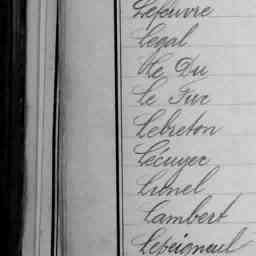 Lefeuvre
Legal
Le Du
Le Fur
Lebreton
Lécuyer
Lionel
Lambert
Lepeigneul